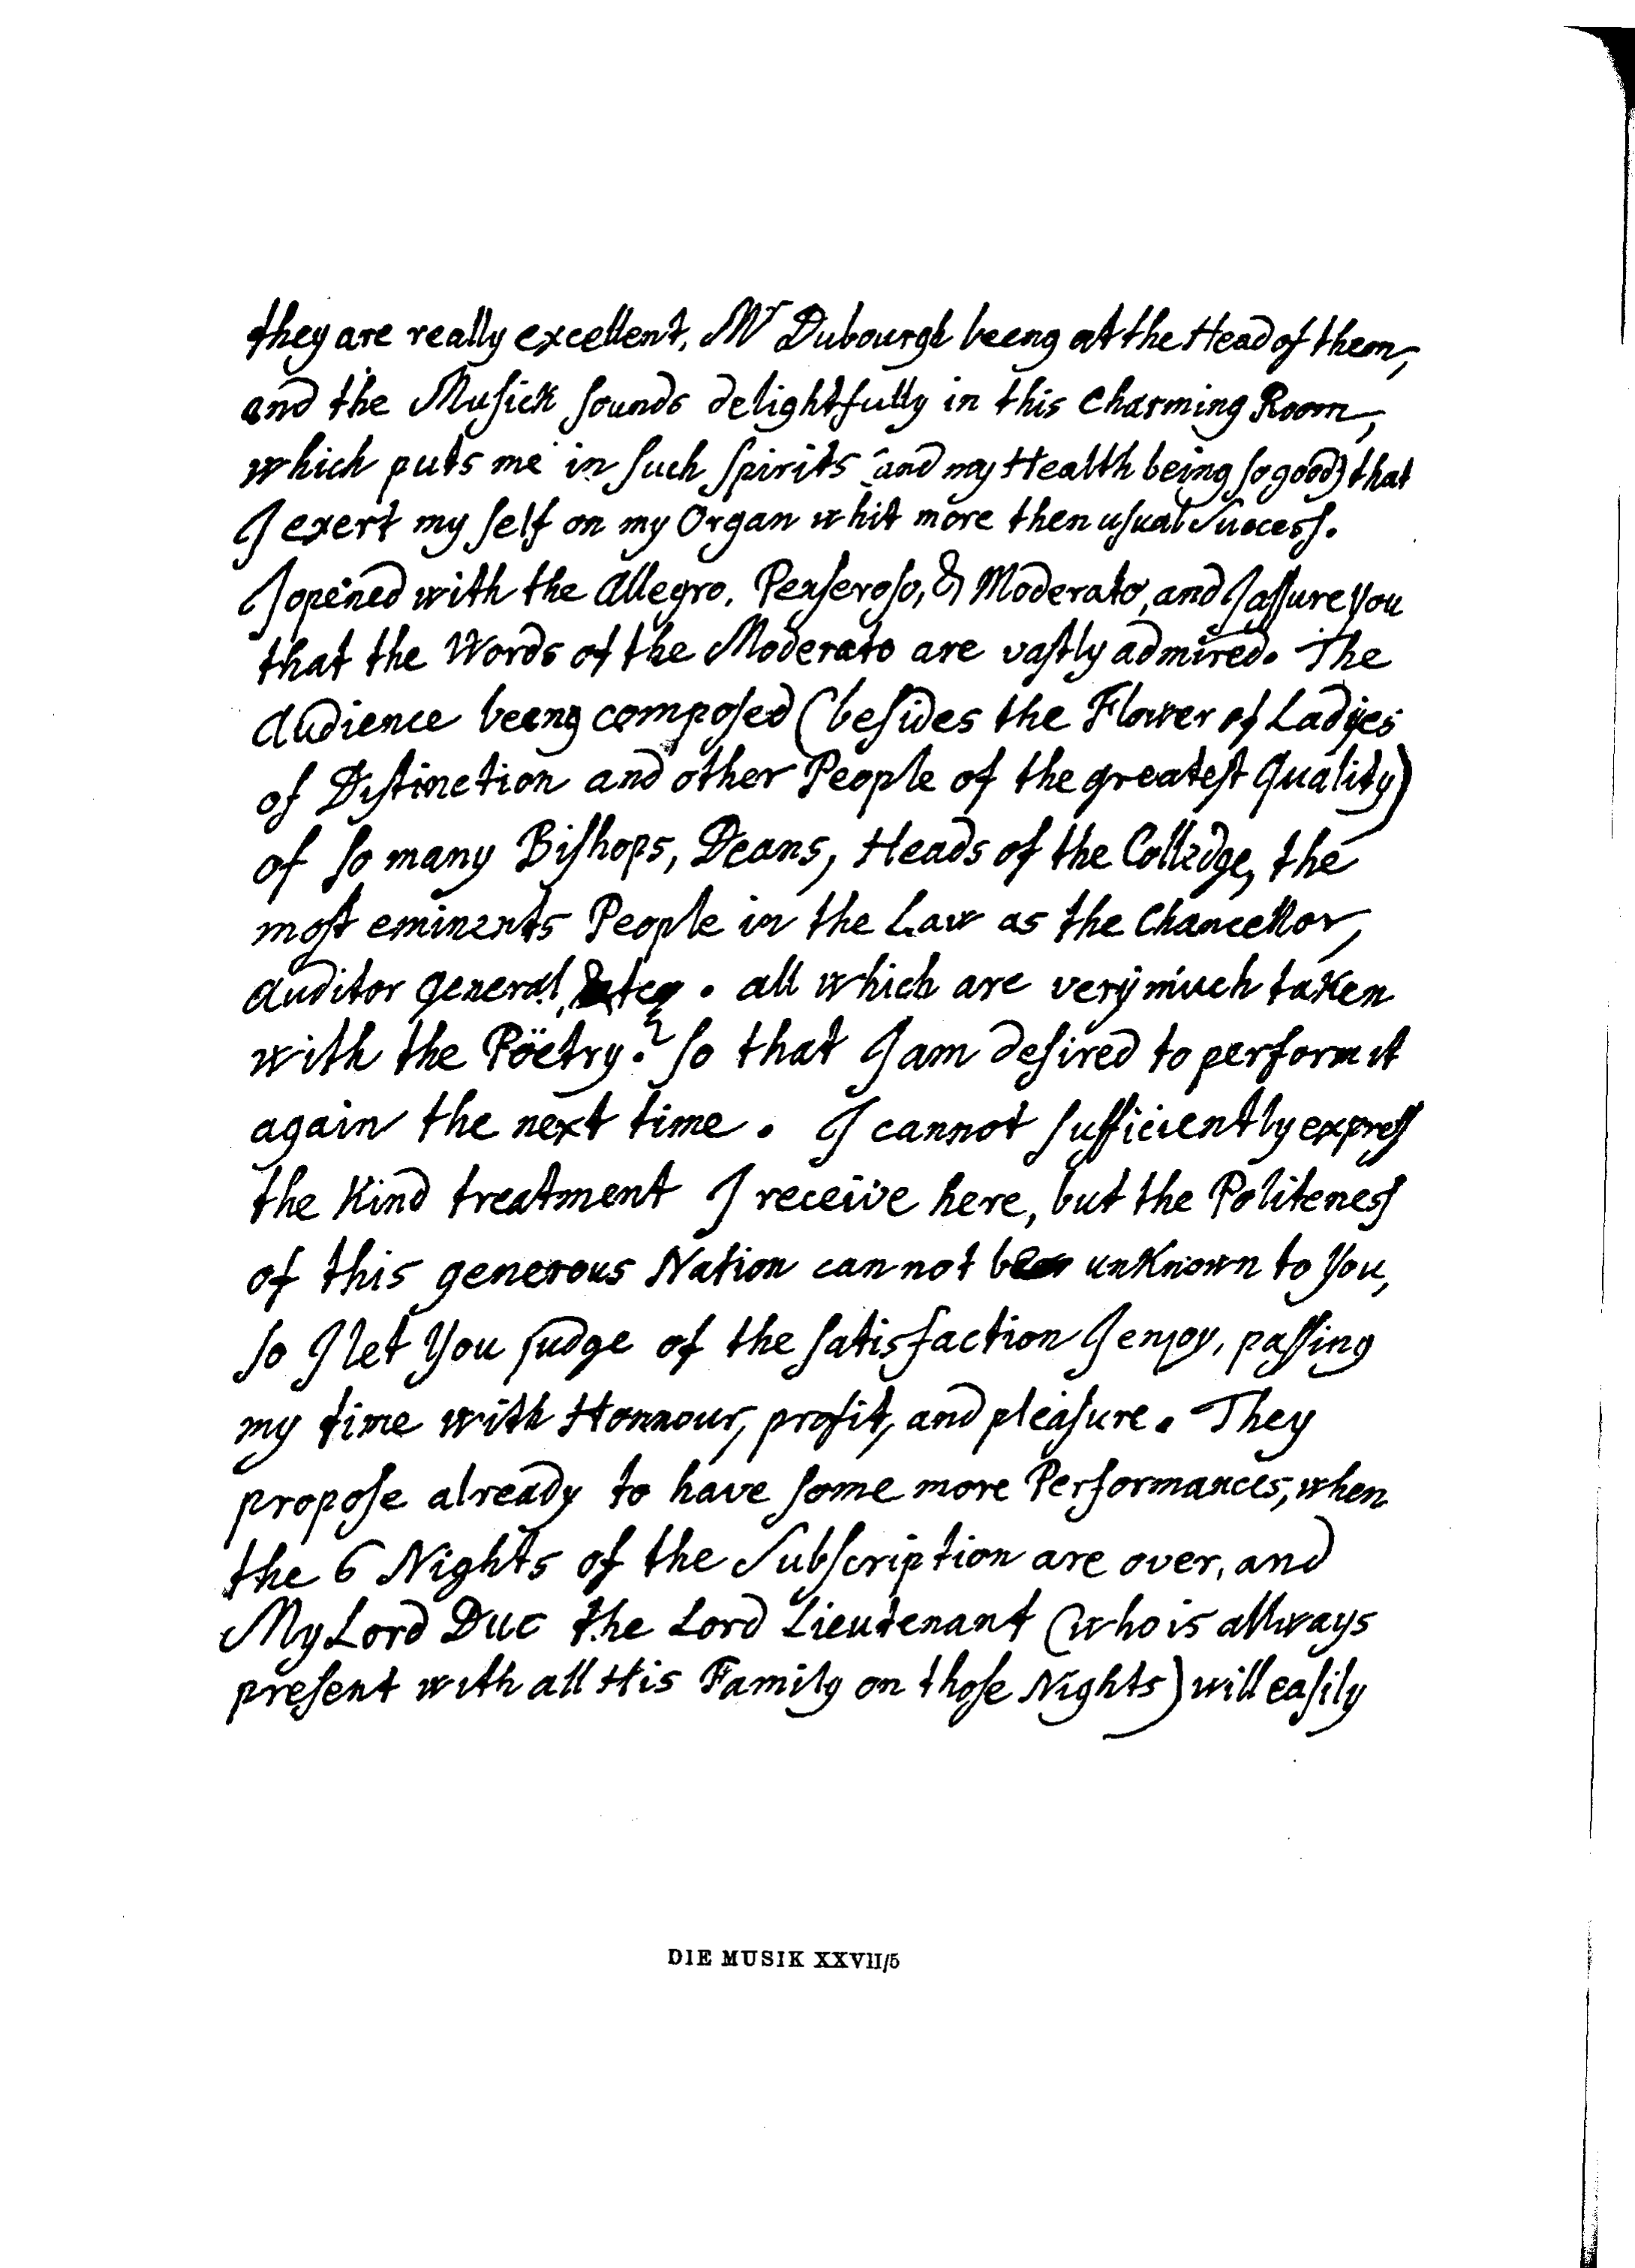 they are really excellent, Mr Dubourgh beeng at the Head of them,
and the Musick sounds delightfully in this charming Room,
which puts me in such Spirits (and my Health being so good) that
I exert my self on my Organ whit more then usual Success.
I opened with the Allegro, Penseroso, & Moderato, and I assure you
that the Words of the Moderato are vastly admired. The
Audience beeng composed (besides the Flower of Ladyes
of Distinction and other People of the greatest Quality)
of so many Bishops, Deans, Heads of the Colledge, the
most eminents People in the Law as the Chancellor,
Auditor General, &tc. all which are very much taken
with the Pöetry. So that I am desired to perform it
again the next time. I cannot sufficiently express
the kind treatment I receive here, but the Politeness
of this generous Nation cannot be unknown to You,
so I let You judge of the satisfaction I enjoy, passing
my time with Honnour, profit, and pleasure. They
propose already to have some more Performances, when
the 6 Nights of the Subscription are over, and
My Lord Duc the Lord Lieutenant (who is allways
present with all His Family on those Nights) will easily
DIE MUSIK XXVII/5